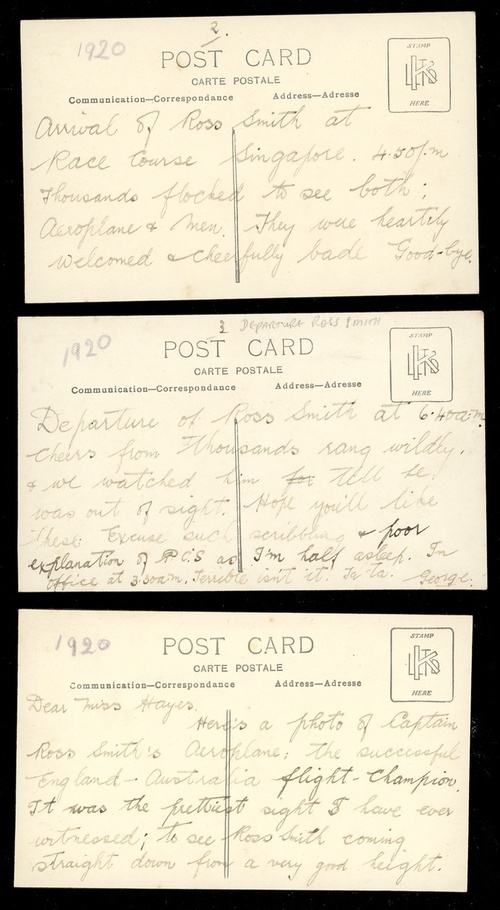 1920
2.
POST CARD
CARTE POSTALE
Communication—Correspondance Address—Adresse
STAMP
HERE
Arrival of Ross Smith at
Race Course Singapore. 4.50p.m
Thousands flocked to see both;
Aeroplane & Men. They were heartily
welcomed & cheerfully bade Good-bye.
3 DEPARTURE ROSS SMITH
1920
POST CARD
CARTE POSTALE
Communication—Correspondance Address—Adresse
STAMP
HERE
Departure of Ross Smith at 6.40a.m.
Cheers from Thousands rang wildly.
& we watched him for till he
was out of sight. Hope you'll like
these. Excuse such scribbling & poor
explanation of P.C.S as I'm half asleep. In
office at 3.30am. Terrible isn't it. Ta-ta. George.
1920
POST CARD
CARTE POSTALE
Communication—Correspondance Address—Adresse
STAMP
HERE
Dear Miss Hayes.
Here's a photo of Captain
Ross Smith's Aeroplane; the successful
England - Australia flight-Champion.
It was the prettiest sight I have ever
witnessed; to see Ross Smith coming
straight down from a very good height.